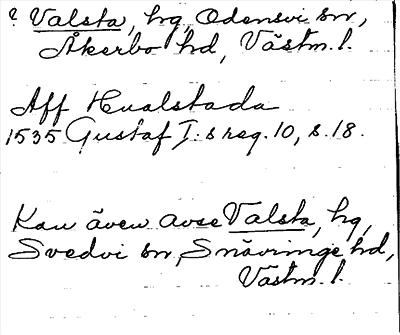 ? Valsta, hg, Odensvi sn,
Åkerbo hd, Västm. l.
Aff Hualstada
1535 Gustaf I:s reg. 10, s. 18.
Kan även avse Valsta, hg,
Svedvi sn, Snävringe hd,
Västm. l.